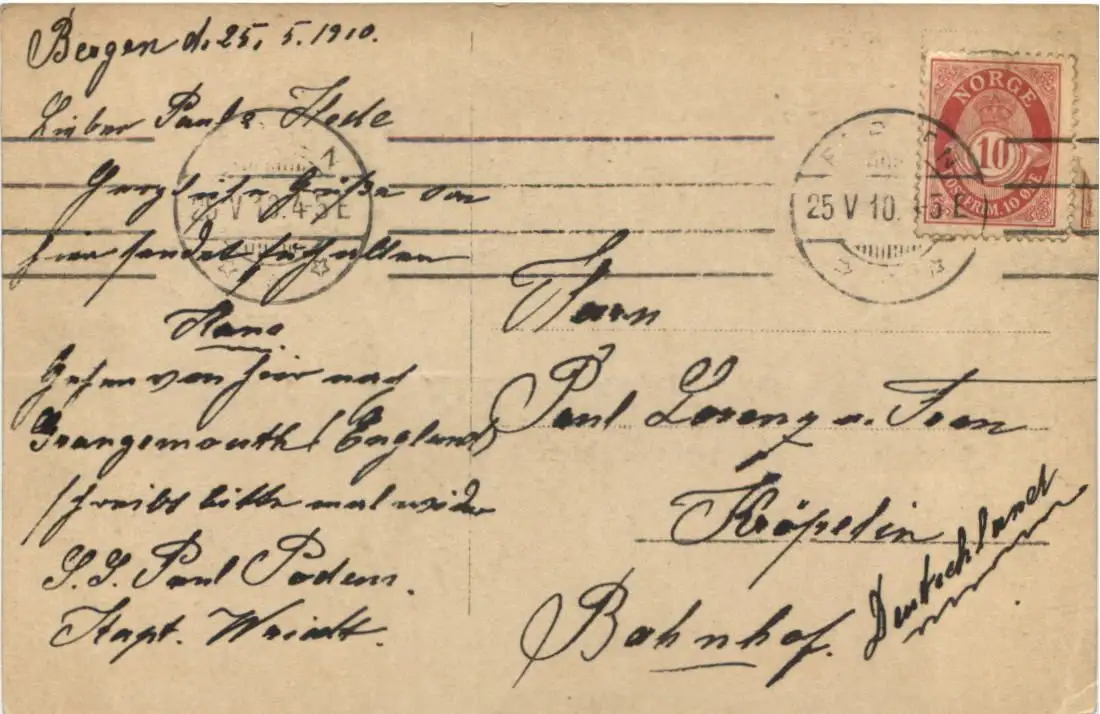 Bergen d. 25. 5. 1910.
Lieber Paul & Hede
Herzliche Grüße von
hier sendet Euch allen
Hans
Gehen von hier nach
Grangemouth (England)
schreibt bitte mal wieder
S.S. Paul Podeus.
Kapt. Wriedt.
NORGE
10
POSTFRIM. 10 ØRE
BERGEN
25 V 10. 4-5 E
25 V 10. 4-5 E
Herrn
Paul Lorenz u. Frau
Kröpelin
Bahnhof.
Deutschland